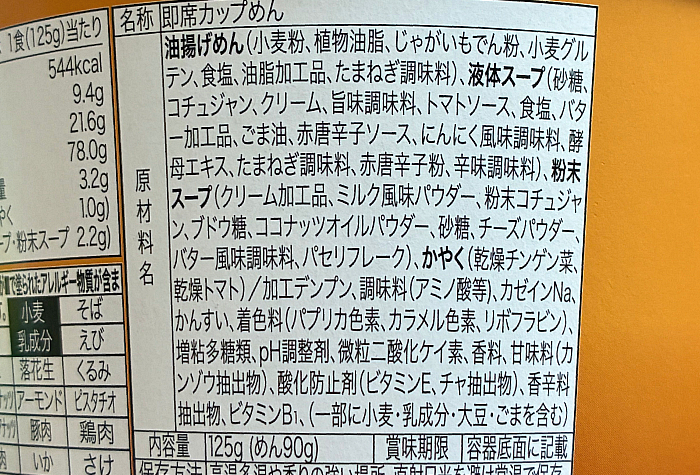 1食(125g)当たり
544kcal
9.4g
21.6g
78.0g
3.2g
1.0g)
粉末スープ 2.2g)
塗られたアレルギー物質が含ま
小麦 そば
乳成分 えび
落花生 くるみ
アーモンド ピスタチオ
豚肉 鶏肉
いか さけ
名称 即席カップめん
原材料名
油揚げめん(小麦粉、植物油脂、じゃがいもでん粉、小麦グル
テン、食塩、油脂加工品、たまねぎ調味料)、液体スープ(砂糖、
コチュジャン、クリーム、旨味調味料、トマトソース、食塩、バタ
ー加工品、ごま油、赤唐辛子ソース、にんにく風味調味料、酵
母エキス、たまねぎ調味料、赤唐辛子粉、辛味調味料)、粉末
スープ(クリーム加工品、ミルク風味パウダー、粉末コチュジャ
ン、ブドウ糖、ココナッツオイルパウダー、砂糖、チーズパウダー、
バター風味調味料、パセリフレーク)、かやく(乾燥チンゲン菜、
乾燥トマト)/加工デンプン、調味料(アミノ酸等)、カゼインNa、
かんすい、着色料(パプリカ色素、カラメル色素、リボフラビン)、
増粘多糖類、pH調整剤、微粒二酸化ケイ素、香料、甘味料(カ
ンゾウ抽出物)、酸化防止剤(ビタミンE、チャ抽出物)、香辛料
抽出物、ビタミンB1、(一部に小麦・乳成分・大豆・ごまを含む)
内容量 125g(めん90g) 賞味期限 容器底面に記載
保存方法 高温多湿や香りの強い場所、直射日光を避け常温で保存